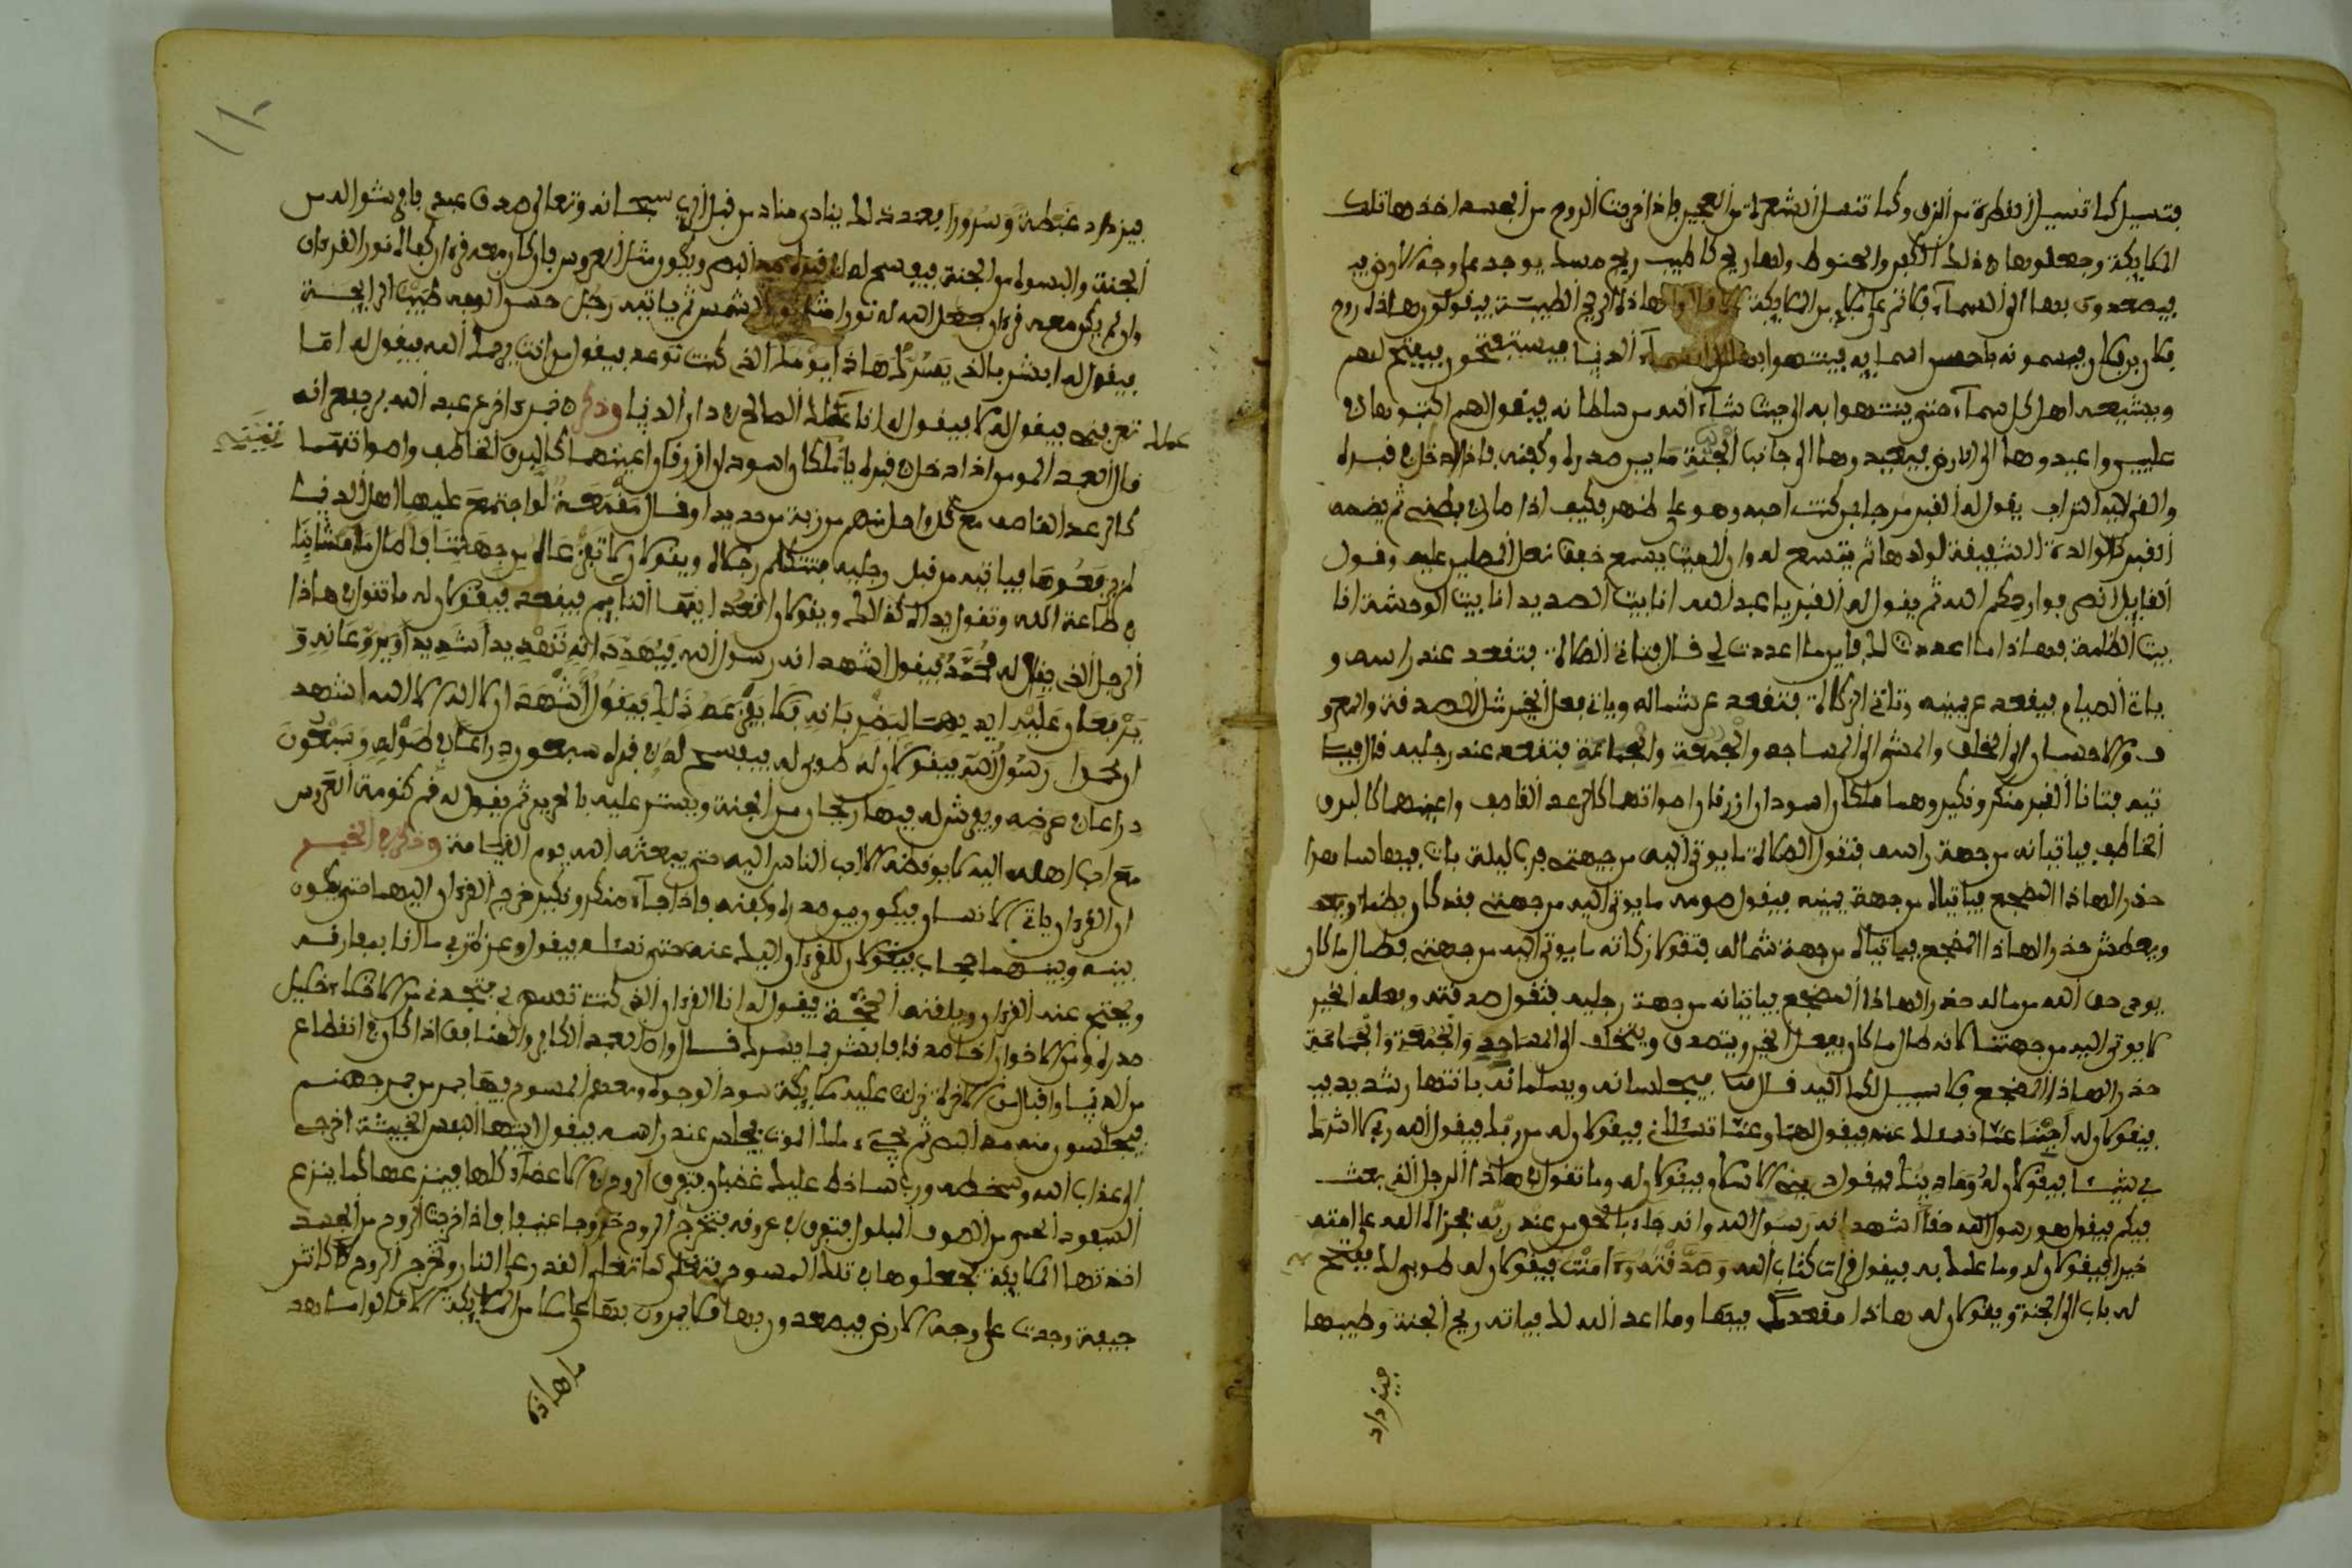 فتسيل كما تسيل القطرة من الزق وكما تنسل الشعرة من العجين فإذا خرجت الروح من الجسد اخذها تلك
الملايكة وجعلوها في ذلك الكفن والحنوط ولها ريح كاطيب ريح مسك يوجد على وجه الارض
فيصعدون بها الى السماء فلا تمر على ملإ من الملايكة الا قالوا ما هاذه الريح الطيبة فيقولون هاذا روح
فلان بن فلان ويسمونه باحسن اسمايه فينتهوا بها الى السماء الدنيا فيستفتحون فيفتح لهم
ويشيعه اهل كل سماء حتى ينتهوا به الى حيث شاء الله من سلطانه فيقول لهم اكتبوها في
عليين واعيدوها الى الارض فيعيدوها الى جانب الجثة ما بين صدره وكفنه فاذا ادخل في قبره
والقي عليه التراب يقول له القبر مرحبا بمن كنت احبه وهو على ظهري فكيف اذا صار في بطني ثم يضمه
القبر كالوالدة الشفيقة لولدها ثم يتسع له وان الميت يسمع خفق نعل المصلين عليه وقول
القايل انصرفوا رحمكم الله ثم يقول له القبر يا عبد الله انا بيت الصديد انا بيت الوحشة انا
بيت الظلمة فهاذا ما اعددت لك فاين ما اعددت لي قال فتاتي الصلاة فتقعد عند راسه و
ياتي الصيام فيقعد عن يمينه وتاتي الزكاة فتقعد عن شماله وياتي فعل الخير مثل الصدقة والمعرو
ف والاحسان الى الخلق والمشي الى المساجد والجمعة والجماعة فتقعد عند رجليه قال فيا
تيه فتانا القبر منكر ونكير وهما ملكان اسودان ازرقان اصواتهما كالرعد القاصف واعينهما كالبرق
الخاطف فياتيانه من جهة راسه فتقول الصلاة ما يوتى اليه من جهتي فرب ليلة بات فيها ساهرا
حذرا لهاذا المضجع فياتيانه من جهة يمينه فيقول صومه ما يوتى اليه من جهتي فقد كان يظمأ ويجوع
ويعطش حذرا لهاذا المضجع فياتيانه من جهة شماله فتقول زكاته ما يوتى اليه من جهتي فطال ما كان
يودي حق الله من ماله حذرا لهاذا المضجع فياتيانه من جهة رجليه فتقول صدقته وفعله الخير
لا يوتى اليه من جهتنا لانه طال ما كان يفعل الخير ويتصدق ويختلف الى المساجد والجمعة والجماعة
حذرا لهاذا المضجع فلا سبيل لكما اليه قال فيجلسانه ويسلمانه بانتهار شديد
فيقولان له اجبنا عما نسالك عنه فيقول لهما وعما تسالاني فيقولان له من ربك فيقول الله ربي لا اشرك
به شيا فيقولان له وما دينك فيقول ديني الاسلام فيقولان له وما تقول في هاذا الرجل الذي بعث
فيكم فيقول هو رسول الله حقا اشهد انه رسول الله وانه جاء بالحق من عند ربه فجزاه الله على امته
خيرا فيقولان له وما علمك به فيقول قرات كتاب الله وصدقته وءامنت فيقولان له طوبى لك فيفتح
له باب الى الجنة ويقولان له هاذا مقعدك فيها وما اعد الله لك فياتيه ريح الجنة وطيبها
فيزداد
١٨
فيزداد غبطة وسرورا فعند ذلك ينادي مناد من قبل الله سبحانه وتعالى صدق عبدي فافرشوا له من
الجنة والبسوه من الجنة فيفسح له في قبره مد البصر ويكون مثل العروس فان كان معه قرءان كفاه نور القرءان
وان لم يكن معه قرءان جعل الله له نورا مثل نور الشمس ثم ياتيه رجل حسن الوجه طيب الرايحة
فيقول له ابشر بالذي يسرك هاذا يومك الذي كنت توعد فيقول من انت يرحمك الله فيقول له اما
تعرفني فيقول له لا فيقول له انا عملك الصالح في دار الدنيا وذكر في خبر ءاخر عن عبد الله يرفعه انه
عملك
قال العبد المومن اذا دخل في قبره يا ملكان اسودان ازرقان اعينهما كالبرق الخاطف واصواتهما
كالرعد القاصف مع كل واحد منهم مرزبة من حديد او قال مقمعة لو اجتمع عليها اهل الدنيا
لم يرفعوها فياتيه من قبل رجليه فتتكلم رجلاه ويقولان لا تفزعاه من جهتنا فطال ما مشا بنا
في طاعة الله وتقول يداه كذالك ويقولان اقعد ايها النايم فيقعد فيقولان له ما تقول في هاذا
الرجل الذي يقال له محمد فيقول اشهد انه رسول الله فيهددانه تهديدا شديدا ويروعانه و
يرفعان عليه ايديهما ليضربانه فلا يفزعه ذلك فيقول اشهد ان لا اله الا الله اشهد
ان محمدا رسول الله فيقولان له طوبى له فيفسح له في قبره سبعون ذراعا في طوله وسبعون
ذراعا في عرضه ويفرش له فيها ريحان من الجنة ويستر عليه بالحرير ثم يقول له نم كنومة العروس
مع احب اهله اليه لا يوقظه الا احب الناس اليه حتى يبعثه الله يوم القيامة وذكر في الخبر
ان القرءان ياتي الانسان فيكون بين صدره وكفنه فاذا جاءه منكر ونكير خرج القرءان اليهما حتى يكون
بينه وبينهما حجاب فيقولان للقرءان اليك عنه حتى نساله فيقول وعزة ربي ما انا بمفارقه
ويحتج عنه القرءان ويلقنه الحجة فيقول له انا القرءان الذي كنت تسهر بي فتجدني من الاخلاء خليل
صدق ومن الاخوان اخا صدق فابشر بما يسرك قال وان العبد الكافر والمنافق اذا كان في انقطاع
من الدنيا واقبال من الاخرة نزلت عليه ملايكة سود الوجوه ومعهم المسوح فيها جمر من جمر جهنم
فيجلسون منه مد البصر ثم يجيء ملك الموت فيجلس عند راسه فيقول ايتها النفس الخبيثة اخرجي
الى عذاب الله وسخطه ورب ساخط عليك غضبان فتفرق الروح في الاعضاء كلها فينزعها كما ينزع
السفود الحمي من الصوف المبلول فتفرق في عروقه فتخرج الروح خروجا عنيفا فاذا خرجت الروح من الجسد
اخذتها الملايكة فجعلوها في تلك المسوح فتغلي كما تغلي القدر على النار وتخرج الروح كانتن
جيفة وجدت على وجه الارض فيصعدون بها فلا يمرون بها على ملإ من الملايكة الا قالوا ما هذه
ما هاذه